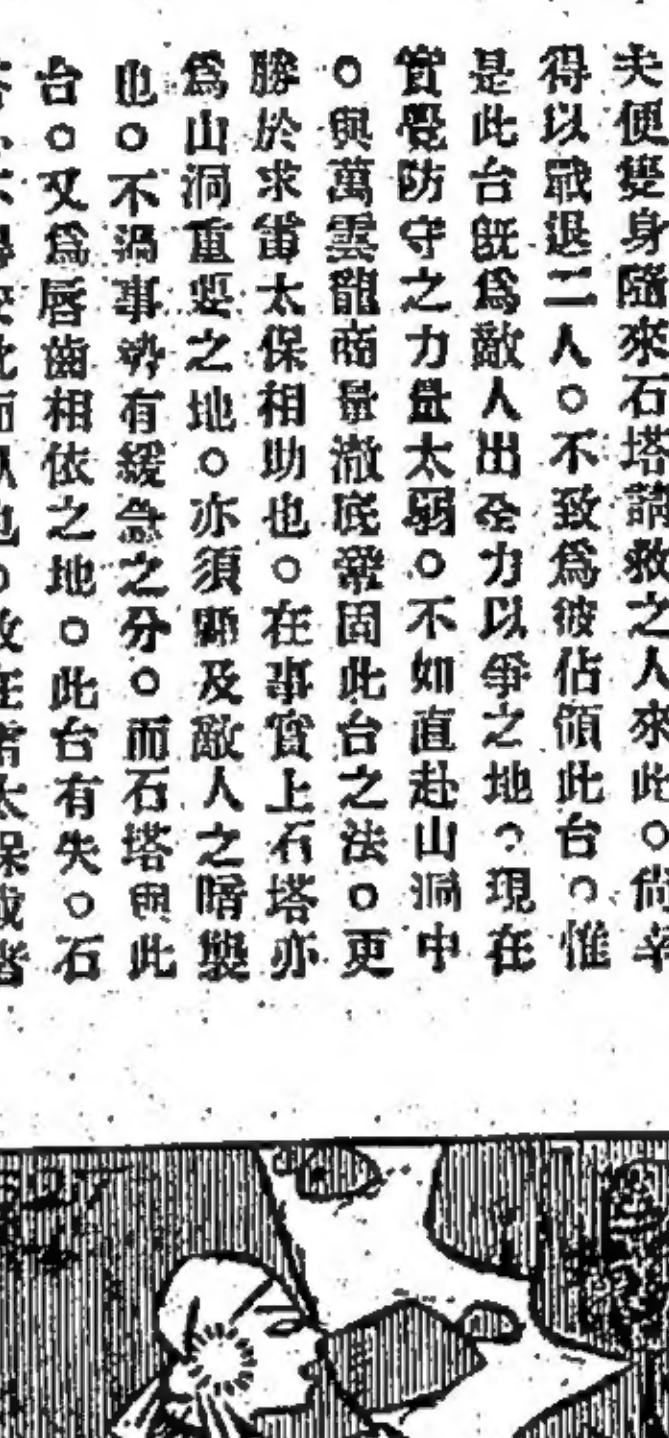 夫便變身隨來石塔請救之人來此。尙幸
得以戰退二人。不致爲彼佔領此台。惟
是此台旣爲敵人出全力以爭之地。現在
實覺防守之力量太弱。不如直赴山洞中
。與萬雲龍商量澈底鞏固此台之法。更
勝於求雷太保相助也。在事實上石塔亦
爲山洞重要之地。亦須顧及敵人之暗襲
也。不過事勢有緩急之分。而石塔與此
台。又爲唇齒相依之地。此台有失。石